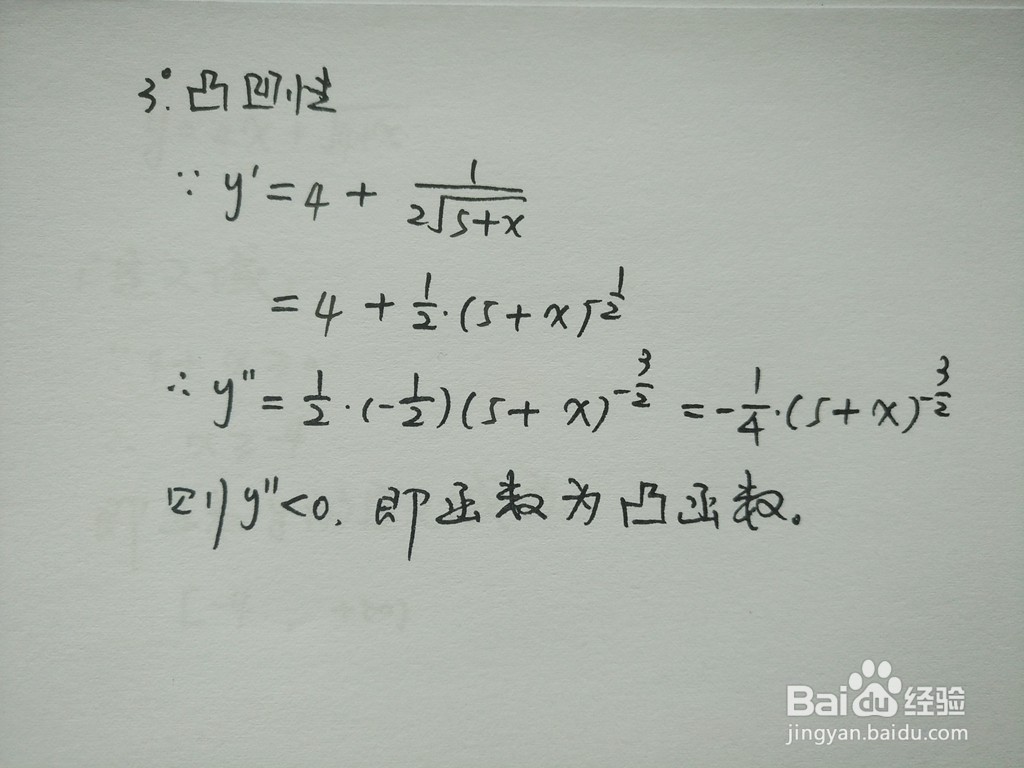 3°. 凸凹性
∵ y' = 4 + 1/(2√(5+x))
= 4 + 1/2·(5+x)^(1/2)
∴ y'' = 1/2·(-1/2)(5+x)^(-3/2) = -1/4·(5+x)^(-3/2)
则y''<0, 即函数为凸函数。
Baidu经验
jingyan.baidu.com